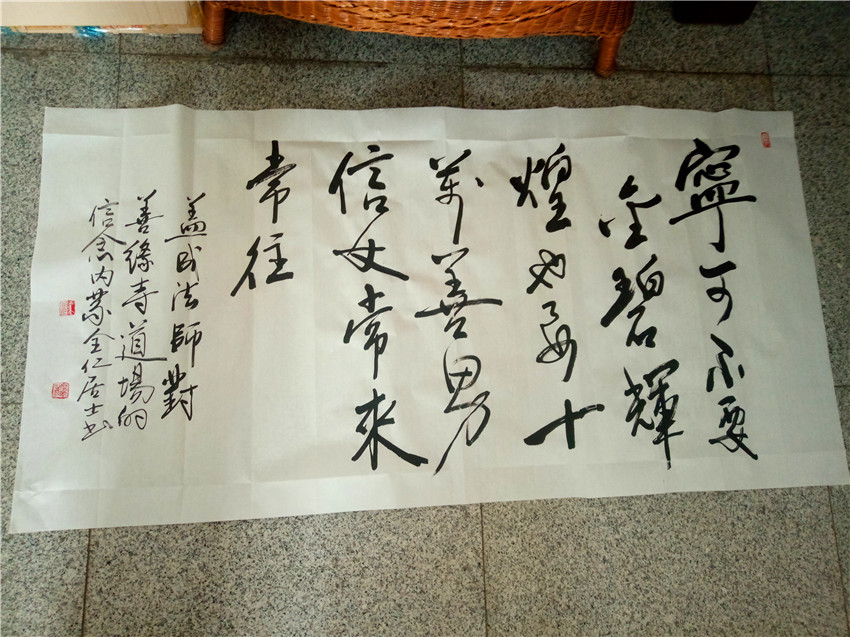 寧可不要
金碧輝
煌也要十
萬善男
信女常來
常往
盖法師對
善緣寺道場的
信念内蒙全仁居士书